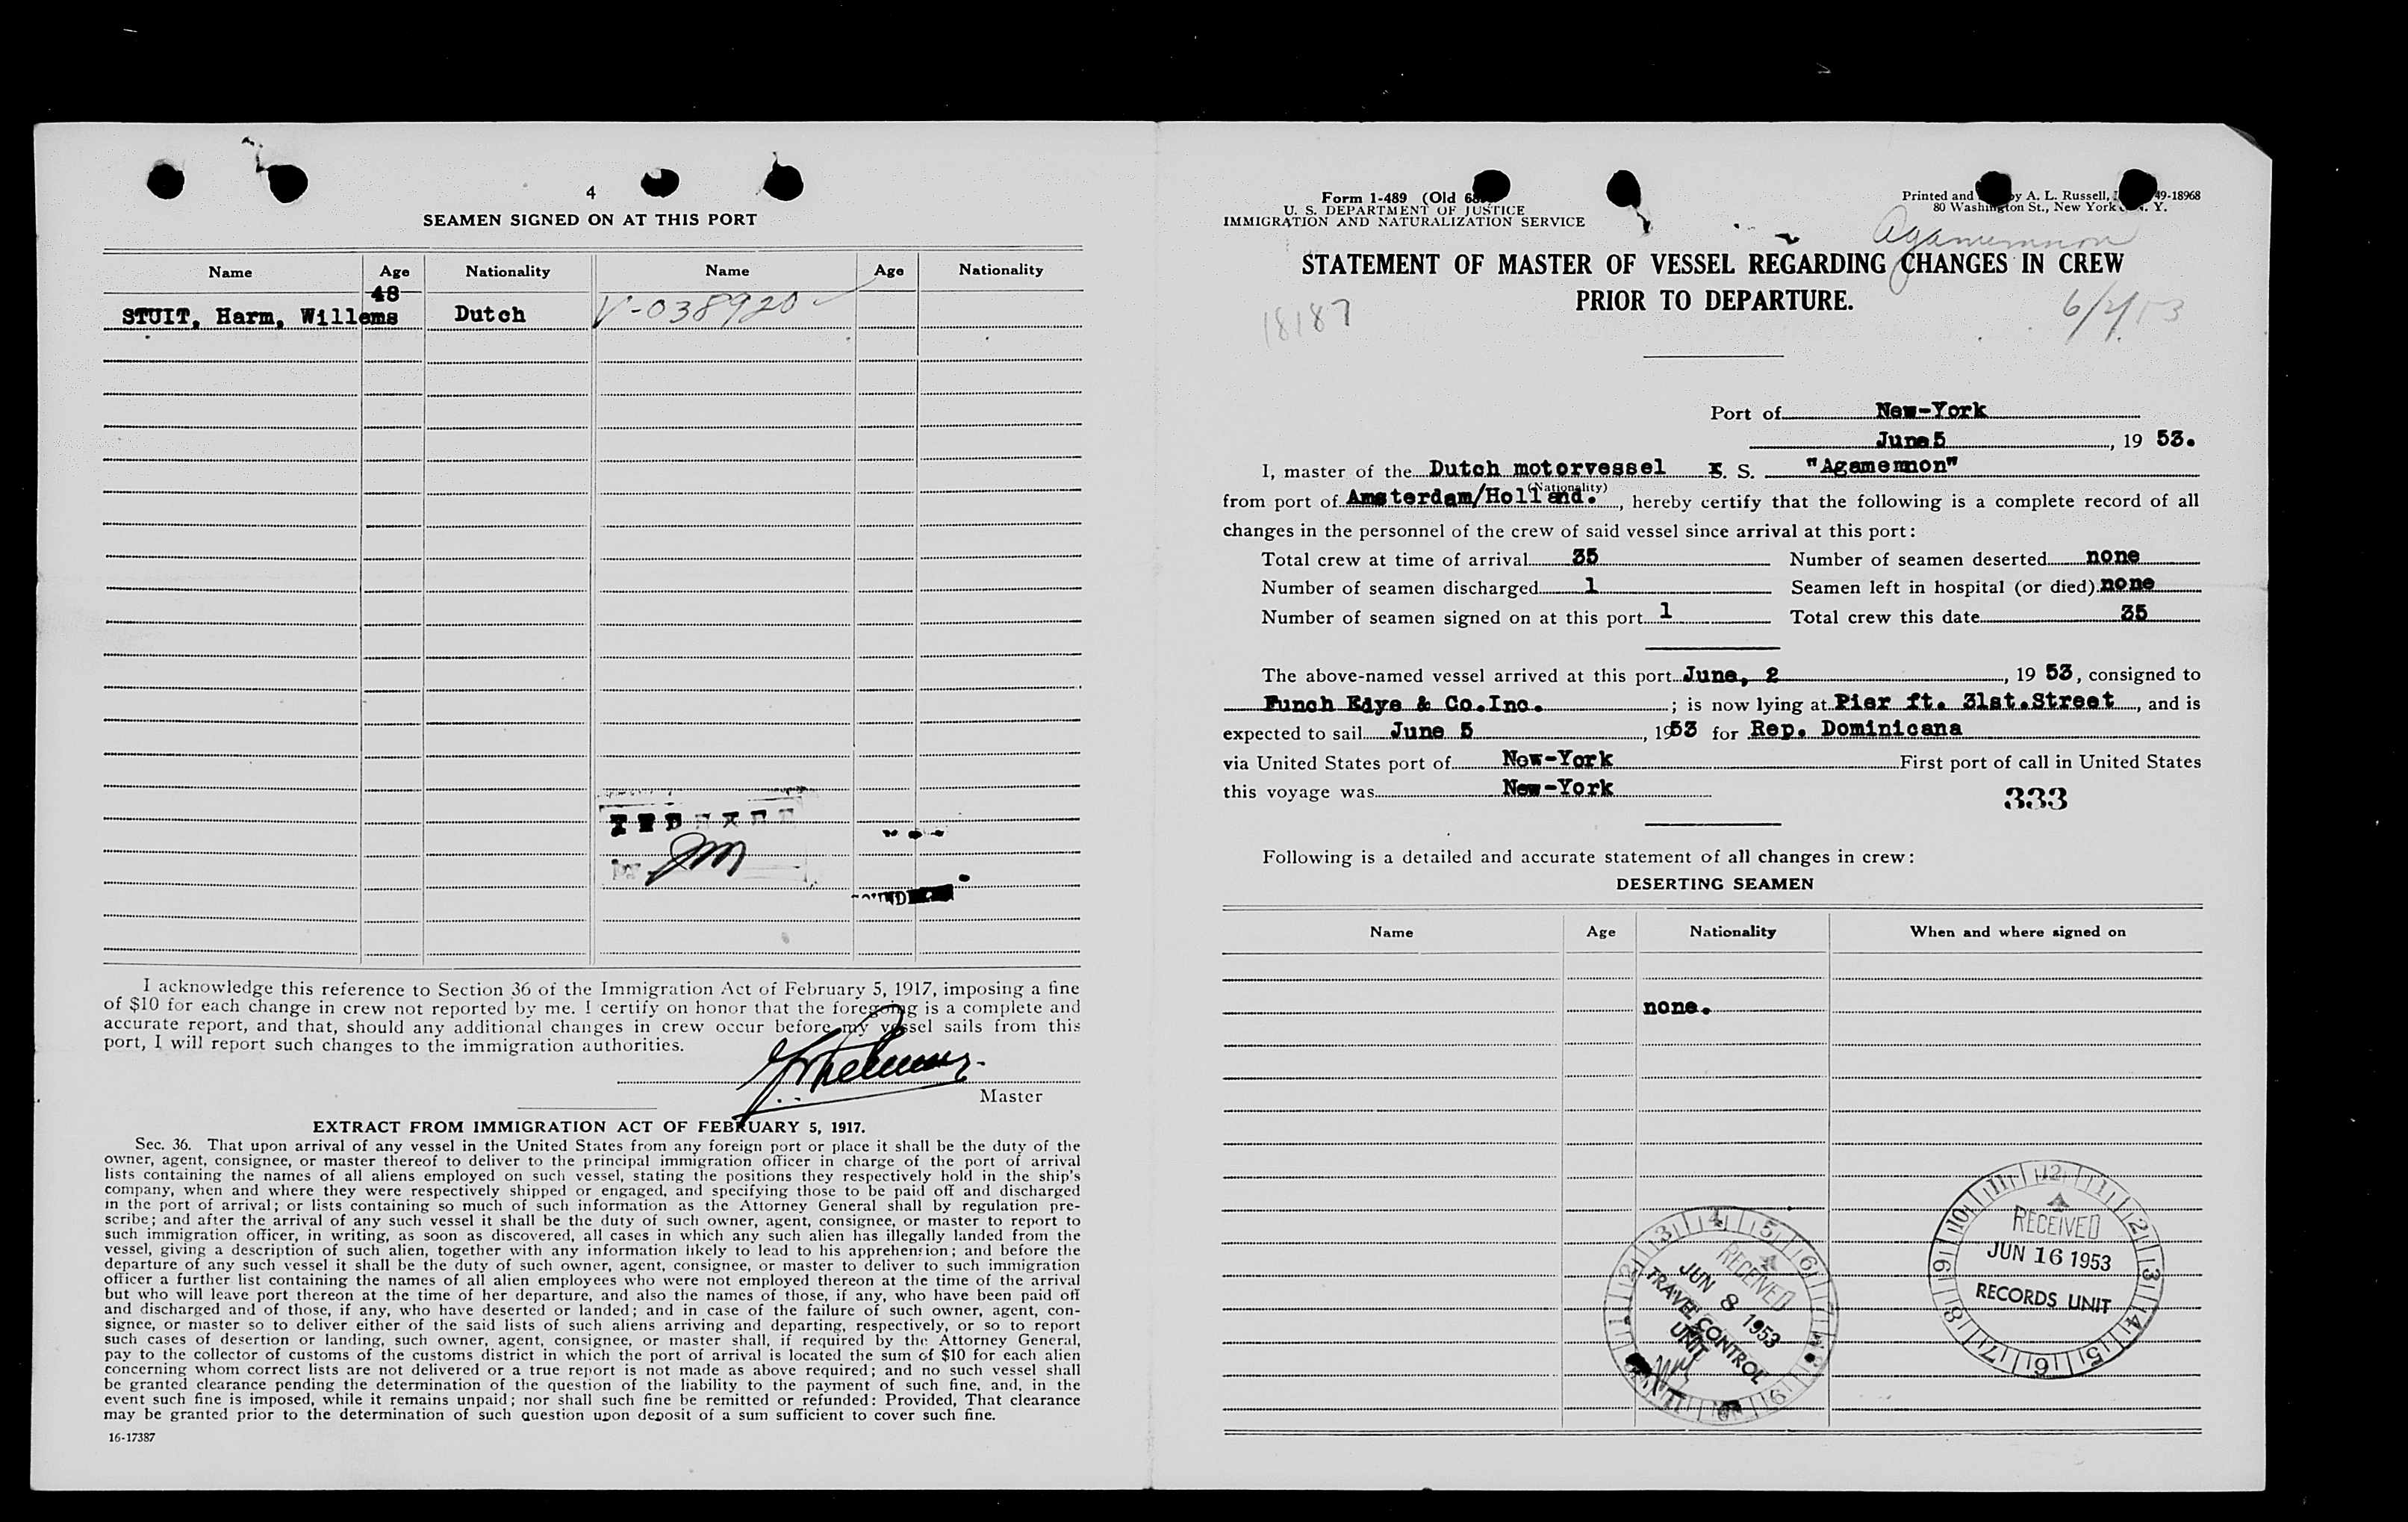 4
SEAMEN SIGNED ON AT THIS PORT
Name Age Nationality Name Age Nationality
48
STUIT, Harm, Willems Dutch V-038920
I acknowledge this reference to Section 36 of the Immigration Act of February 5, 1917, imposing a fine
of $10 for each change in crew not reported by me. I certify on honor that the foregoing is a complete and
accurate report, and that, should any additional changes in crew occur before my vessel sails from this
port, I will report such changes to the immigration authorities.
Master
EXTRACT FROM IMMIGRATION ACT OF FEBRUARY 5, 1917.
Sec. 36. That upon arrival of any vessel in the United States from any foreign port or place it shall be the duty of the
owner, agent, consignee, or master thereof to deliver to the principal immigration officer in charge of the port of arrival
lists containing the names of all aliens employed on such vessel, stating the positions they respectively hold in the ship's
company, when and where they were respectively shipped or engaged, and specifying those to be paid off and discharged
in the port of arrival; or lists containing so much of such information as the Attorney General shall by regulation pre-
scribe; and after the arrival of any such vessel it shall be the duty of such owner, agent, consignee, or master to report to
such immigration officer, in writing, as soon as discovered, all cases in which any such alien has illegally landed from the
vessel, giving a description of such alien, together with any information likely to lead to his apprehension; and before the
departure of any such vessel it shall be the duty of such owner, agent, consignee, or master to deliver to such immigration
officer a further list containing the names of all alien employees who were not employed thereon at the time of the arrival
but who will leave port thereon at the time of her departure, and also the names of those, if any, who have been paid off
and discharged and of those, if any, who have deserted or landed; and in case of the failure of such owner, agent, con-
signee, or master so to deliver either of the said lists of such aliens arriving and departing, respectively, or so to report
such cases of desertion or landing, such owner, agent, consignee, or master shall, if required by the Attorney General,
pay to the collector of customs of the customs district in which the port of arrival is located the sum of $10 for each alien
concerning whom correct lists are not delivered or a true report is not made as above required; and no such vessel shall
be granted clearance pending the determination of the question of the liability to the payment of such fine, and, in the
event such fine is imposed, while it remains unpaid; nor shall such fine be remitted or refunded: Provided, That clearance
may be granted prior to the determination of such question upon deposit of a sum sufficient to cover such fine.
16-17387
Form 1-489 (Old
U. S. DEPARTMENT OF JUSTICE
IMMIGRATION AND NATURALIZATION SERVICE
Printed and by A. L. Russell, 49-18968
80 Washington St., New York Y.
Agamemnon
STATEMENT OF MASTER OF VESSEL REGARDING CHANGES IN CREW
PRIOR TO DEPARTURE.
18187
6/2/53
Port of New-York
June 5, 19 53.
I, master of the Dutch motorvessel S. S. "Agamemnon"
(Nationality)
from port of Amsterdam/Holland., hereby certify that the following is a complete record of all
changes in the personnel of the crew of said vessel since arrival at this port:
Total crew at time of arrival 35 Number of seamen deserted none
Number of seamen discharged 1 Seamen left in hospital (or died) none
Number of seamen signed on at this port 1 Total crew this date 35
The above-named vessel arrived at this port June, 2, 19 53, consigned to
Funch Edye & Co.Inc.; is now lying at Pier ft. 31st.Street, and is
expected to sail June 5, 1953 for Rep. Dominicana
via United States port of New-York First port of call in United States
this voyage was New-York
333
Following is a detailed and accurate statement of all changes in crew:
DESERTING SEAMEN
Name Age Nationality When and where signed on
none.
RECEIVED
JUN 8 1953
TRAVEL CONTROL
UNIT
RECEIVED
JUN 16 1953
RECORDS UNIT